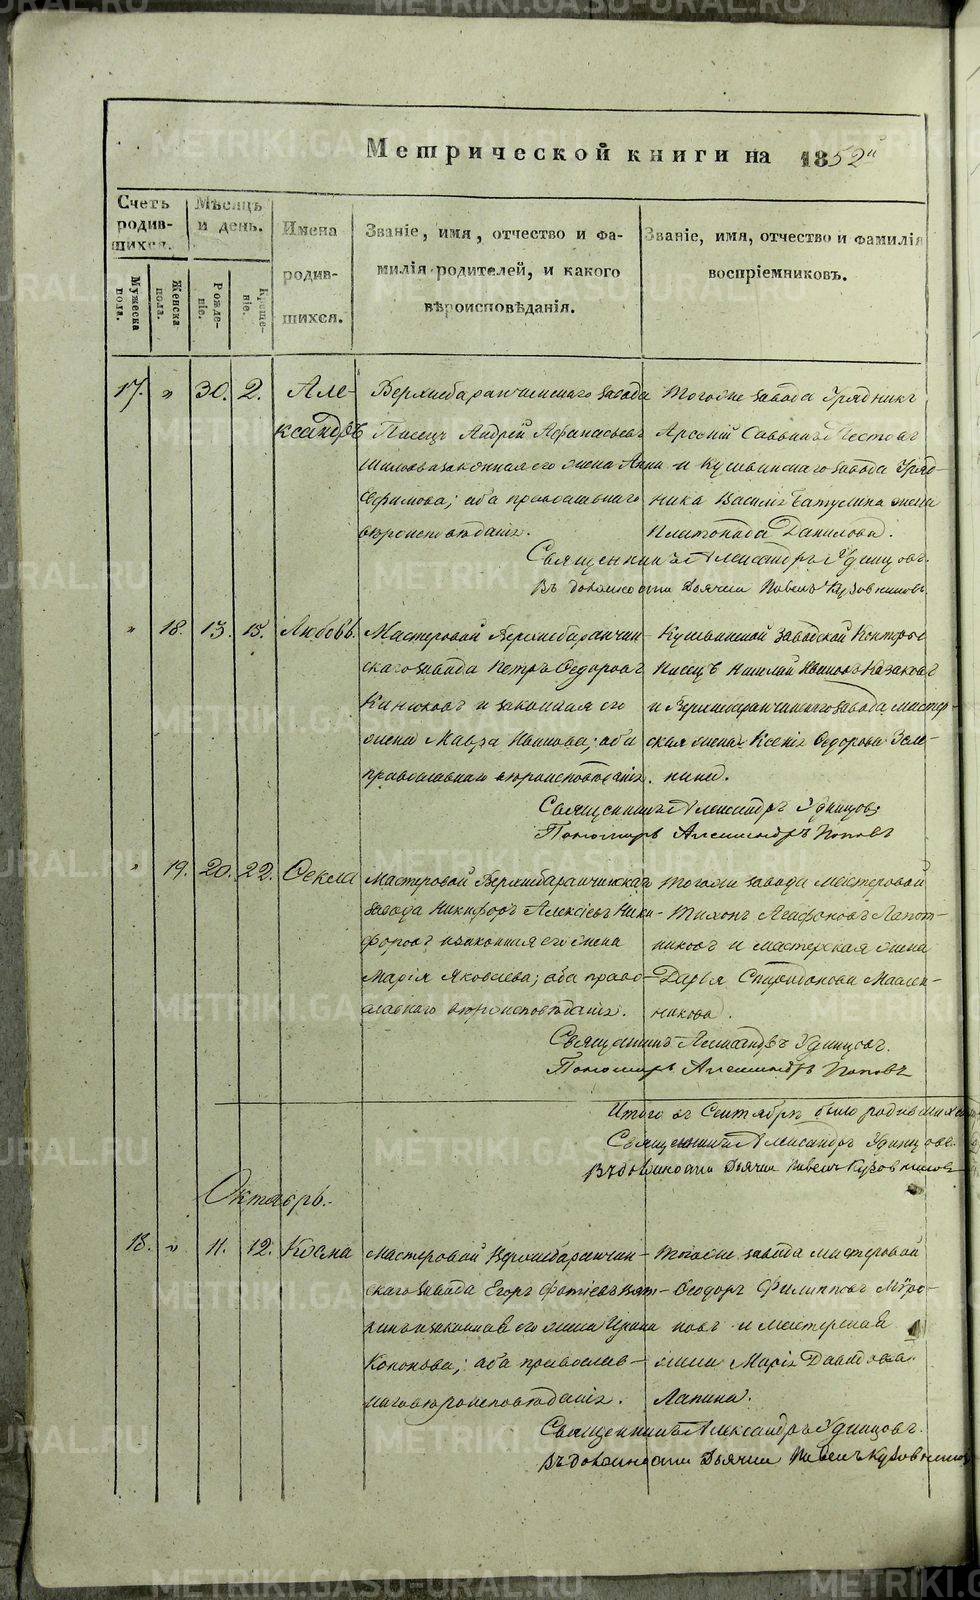 Метрической книги на 1852й
Счетъ родившихся.
Мѣсяцъ и день.
Имена родившихся.
Званіе, имя, отчество и фамилія родителей, и какого вѣроисповѣданія.
Званіе, имя, отчество и фамилія воспріемниковъ.
Мужеска пола.
Женска пола.
Рожденіе.
Крещеніе.
17. " 30. 2. Але- Верхнебаранчинскаго завода Тогоже завода Урядникъ
ксандръ Писецъ Андрей Афанасьевъ Арсеній Саввинъ
законная его жена Анна и Кушвинскаго завода Уряд-
Ефимова; оба православнаго ника Василія жена
вѣроисповѣданія. Данилова.
Священникъ Александръ Удинцовъ.
Въ должности Дьячка Павелъ Кузовниковъ
" 18. 13. 15. Любовь. Мастеровой Верхнебаранчин- Кушвинской заводской Конторы
скаго завода Петръ Ѳедоровъ писецъ Николай Ивановъ Казаковъ
и законная его и Верхнебаранчинскаго завода мастер-
жена Мавра Иванова; оба ская жена Ксенія Ѳедорова Зеле-
православнаго вѣроисповѣданія. нина.
Священникъ Александръ Удинцовъ
Пономарь Александръ Поповъ
" 19. 20. 22. Ѳекла Мастеровой Верхнебаранчинскаго тогоже завода мастеровой
завода Никифоръ Алексѣевъ Ники- Тихонъ Агафоновъ Лапот-
форовъ и законная его жена никовъ и мастерская жена
Марія Яковлева; оба право- Дарья Спиридонова Маслен-
славнаго вѣроисповѣданія. никова.
Священникъ Александръ Удинцовъ.
Пономарь Александръ Поповъ
Итого въ Сентябрѣ было родившихся
Священникъ Александръ Удинцовъ.
Въ должности Дьячка Павелъ Кузовниковъ
Октябрь.
18. " 11. 12. Косма Мастеровой Верхнебаранчин- Тогоже завода мастеровой
скаго завода Егоръ Фотіевъ Вят- Ѳеодоръ Филипповъ Мѵро-
кинъ и законная его жена Ирина новъ и мастерская
Кононова; оба православ- жена Марія Давыдова
наго вѣроисповѣданія. Лапина.
Священникъ Александръ Удинцовъ.
Въ должности Дьячка Павелъ Кузовниковъ
METRIKI.GASO-URAL.RU